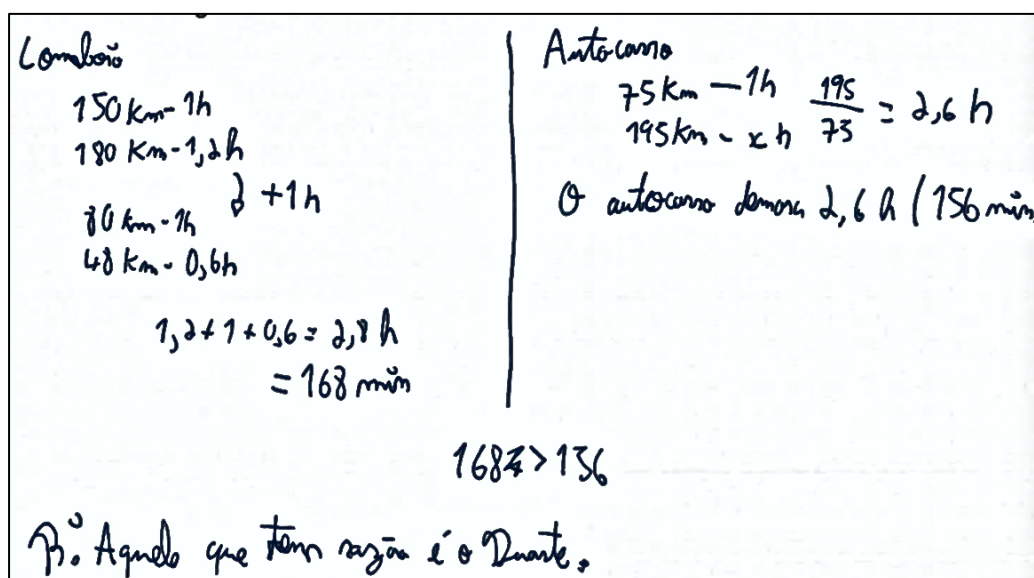 Comboio
150 Km - 1h
180 Km - 1,2h
} +1h
80 Km - 1h
48 Km - 0,6h
1,2 + 1 + 0,6 = 2,8 h
= 168 min
Autocarro
75 Km — 1h
195 Km - x h
195/75 = 2,6 h
O autocarro demora 2,6 h (156 min
168 > 156
R: Aquele que tem razão é o Duarte.